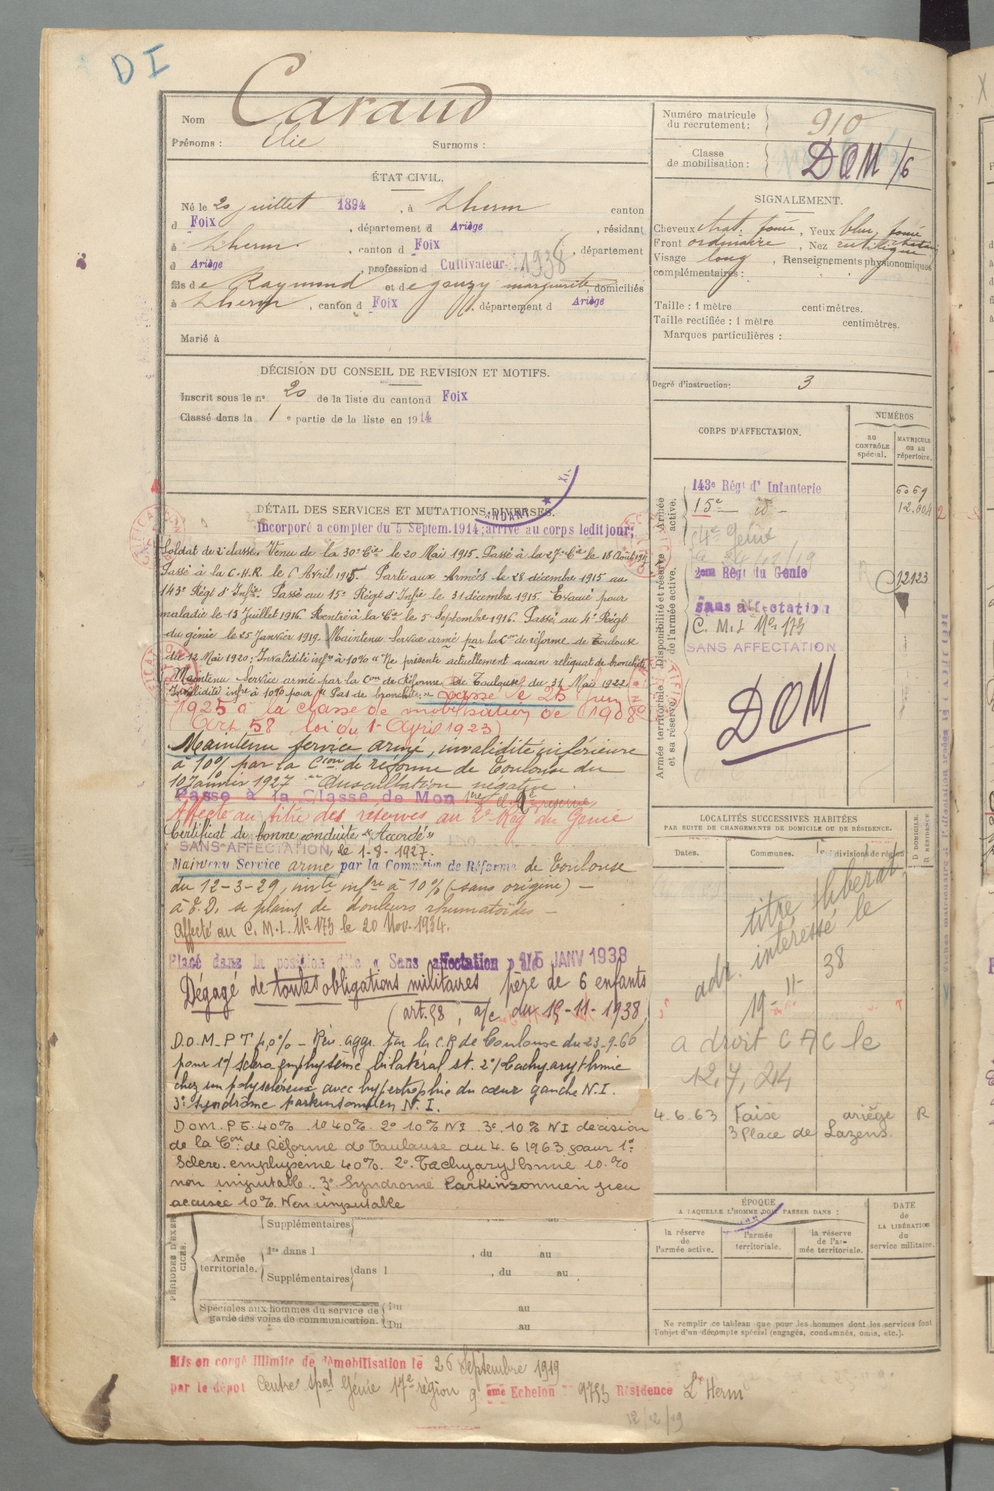 DI
Nom Caraud
Prénoms : Elie Surnoms :
ÉTAT CIVIL.
Né le 20 juillet 1894, à Lherm canton
d Foix, département d Ariège, résidant
à Lherm, canton d Foix, département
d Ariège, profession d Cultivateur 1938
fils de Raymond et de gouzy marguerite, domiciliés
à Lherm, canton d Foix, département d Ariège
Marié à
DÉCISION DU CONSEIL DE REVISION ET MOTIFS.
Inscrit sous le n° 20 de la liste du canton d Foix
Classé dans la 1e partie de la liste en 1914
DÉTAIL DES SERVICES ET MUTATIONS DIVERSES.
Incorporé a compter du 5 Septem. 1914; arrivé au corps ledit jour;
Soldat de 2e classe. Venu de la 30e Cie le 20 Mai 1915. Passé à la 27e Cie le 18 Août 1915
Passé à la C.H.R. le 6 Avril 1915. Parti aux Armées le 28 décembre 1915 au
143e Régt d'Infie. Passé au 15e Régt d'Infie le 31 décembre 1915. Evacué pour
maladie le 13 Juillet 1916. Rentré à la Cie le 5 Septembre 1916. Passé au 4e Régt
du génie le 25 Janvier 1919. Maintenu Service armé par la Con de réforme de Toulouse
du 12 Mai 1920; Invalidité infre à 10% "Ne présente actuellement aucun reliquat de bronchite"
Maintenu Service armé par la Con de Réforme de Toulouse du 31 Mai 1922
Invalidité infre à 10% pour "Pas de bronchite" passé le 25 juin
1925 à la classe de mobilisation de 1908
Art. 58 loi du 1er Avril 1923
Maintenu service armé, invalidité inférieure
à 10% par la Con de réforme de Toulouse du
10 Janvier 1927 "Auscultation négative"
Passe à la Classe de Mon
Affecté au titre des réserves au 2e Rég. du Génie
Certificat de bonne conduite "Accordé"
SANS AFFECTATION, le 1-8-1927.
Maintenu Service armé par la Commission de Réforme de Toulouse
du 12-3-29, invte infre à 10% (sans origine) —
à E.D. se plaint de douleurs rhumatoïdes —
affecté au C.M.I. No 173 le 20 Nov. 1934.
Placé dans la position dite « Sans affectation » le 15 JANV 1938
Dégagé de toutes obligations militaires père de 6 enfants
(art. 58, a/c du 19-11-1938)
D.O.M.P T 40% — Rév. aggr. par la C.R de Toulouse du 23-9-60
pour 1°/ scléro emphysème bilatéral st. 2°/ tachyarythmie
chez un polyscléreux avec hypertrophie du cœur gauche N.I.
3° Syndrome parkinsonien N.I.
DOM. P.T. 40% 1° 40% 2° 10% NI 3° 10% NI décision
de la Con de Réforme de Toulouse du 4.6.1963 pour 1°
Scléro. emphysème 40% 2° Tachyarythmie 10.%
non imputable. 3° Syndrome Parkinsonnien peu
accusée 10% Non imputable
PÉRIODES D'EXERCICES.
Supplémentaires
Armée territoriale.
1re dans l , du au
Supplémentaires dans l , du au
Spéciales aux hommes du service de garde des voies de communication.
Du au
Du au
Mis en congé illimité de démobilisation le 26 Septembre 1919
par le dépôt Centre spal Génie 17e région 9 ème Echelon 9753 Résidence L'Herm
12/12/19
Numéro matricule du recrutement : 910
Classe de mobilisation : DOM/6
SIGNALEMENT.
Cheveux chat. foncé, Yeux bleu foncé
Front ordinaire, Nez rectiligne
Visage long, Renseignements physionomiques
complémentaires :
Taille : 1 mètre centimètres.
Taille rectifiée : 1 mètre centimètres.
Marques particulières :
Degré d'instruction : 3
CORPS D'AFFECTATION.
NUMÉROS
AU CONTRÔLE spécial.
MATRICULE OU AU répertoire.
Armée active.
143e Régt d'Infanterie 6069
15e — d° — 12.004
4e Génie
Disponibilité et réserve de l'armée active.
2eme Régt du Génie C 12123
Sans affectation
C.M.I. No 173
SANS AFFECTATION
Armée territoriale et sa réserve.
DOM
LOCALITÉS SUCCESSIVES HABITÉES
PAR SUITE DE CHANGEMENTS DE DOMICILE OU DE RÉSIDENCE.
Dates. Communes. Subdivisions de région. D DOMICILE. R RÉSIDENCE
titre libérat.
adr. intéressé le
19-11-38
a droit C A C le
12,7,24
4.6.63 Foix ariège R
3 Place de Lazema
ÉPOQUE
A LAQUELLE L'HOMME DOIT PASSER DANS :
la réserve de l'armée active.
l'armée territoriale.
la réserve de l'armée territoriale.
DATE de LA LIBÉRATION du service militaire.
Ne remplir ce tableau que pour les hommes dont les services font
l'objet d'un décompte spécial (engagés, condamnés, omis, etc.).